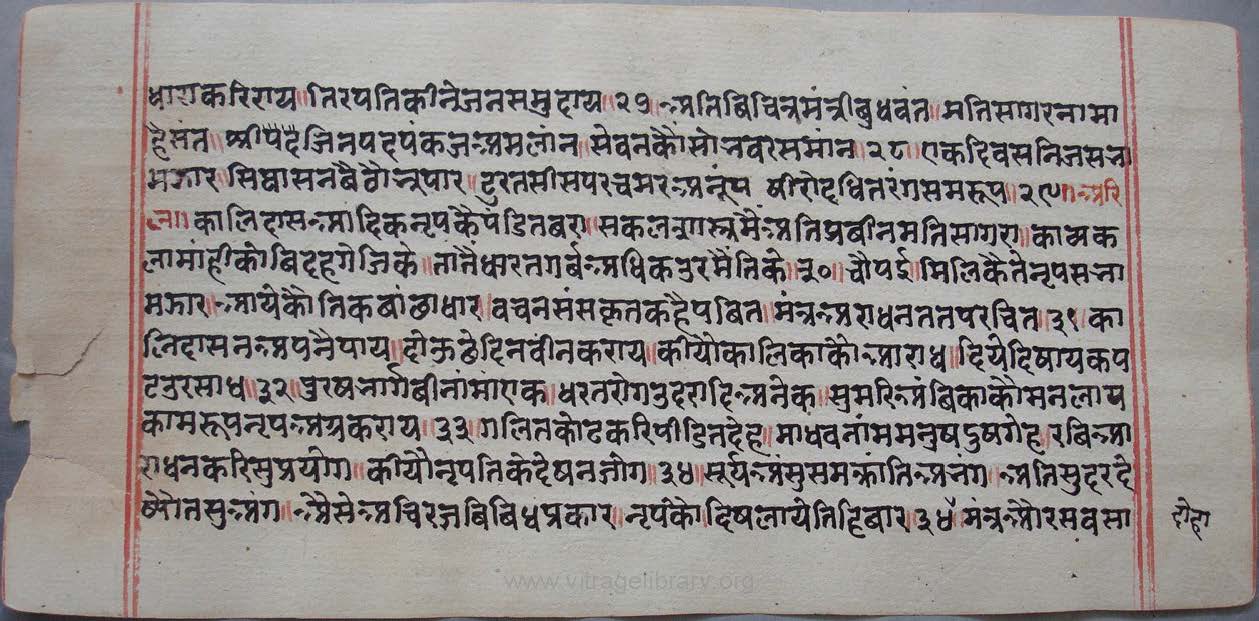 धारा करिराय ॥ तिरपति कीने जन समुदाय ॥ २७ ॥ अति बिचित्र मंत्री बुधवंत ॥ मतिसागर नामा
है संत ॥ श्री पद जिन पद पंकज अमलांन ॥ सेवन कौ सो भवर समांन ॥ २८ ॥ एक दिवस निज सभा
मझार ॥ सिंघासन बैठौ भूपार ॥ ढुरत सीस पर चमर अनूप ॥ षीरोदधि तरंग सम रूप ॥ २९ ॥ अरि
ल ॥ कालिदास आदिक नृप कै पंडित बरा ॥ सकल शास्त्र मै अति प्रबीन मति सागरा ॥ काव्य क
ला मांही कोबिद हगे जिके ॥ तातै धारत गर्ब अधिक उर मैं तिके ॥ ३० ॥ चौपई ॥ मिलि कै ते नृप सभा
मझार ॥ आये कौतिक बांछा धार ॥ बचन संसकृत कहै पबित ॥ मंत्र अराधन ततपर चित ॥ ३१ ॥ का
लिदास न अपनै पाय ॥ दोऊ छेदि नवीन कराय ॥ कीयौ कालिका कौ आराध ॥ दिये दिषाय कप
ट उर साध ॥ ३२ ॥ पुरष भार्गबी नांमां एक ॥ धरत रोग उदरादि अनेक ॥ सुमरि अंबिका कौ मन लाय
कामरूप नृप अग्र कराय ॥ ३३ ॥ गलित कोढ करि पीडित देह ॥ माधव नांम मनुष दुष गेह ॥ रबि आ
राधन करि सुप्रयोग ॥ कीयौ नृपति के देषन जोग ॥ ३४ ॥ सूर्य अंसु सम क्रांति अनंग ॥ अति सुंदर दे
ष्यौ त सु अंग ॥ अैसे अचिरज बिबिध प्रकार ॥ नृप कौ दिषलाये तिहि बार ॥ ३५ ॥ मंत्र और सब सा
दोहा
www.vitragelibrary.org